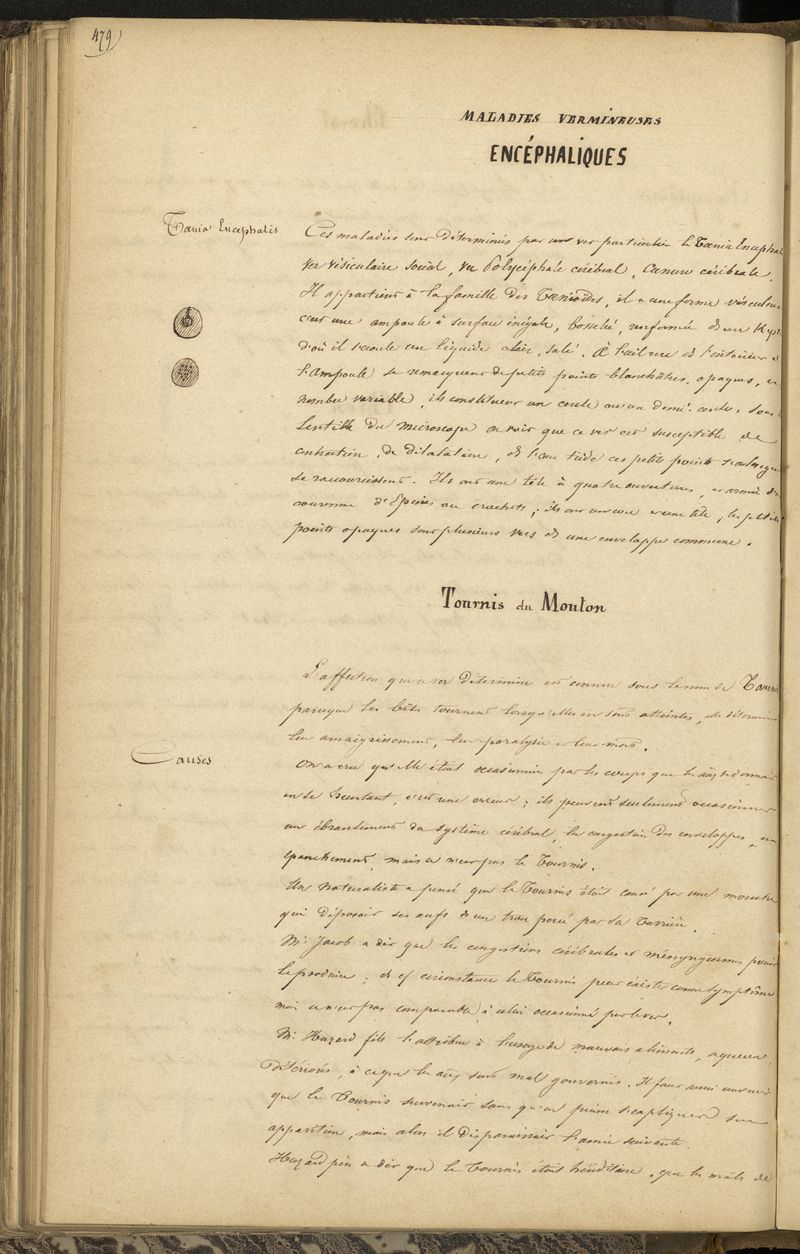 479
MALADIES VERMINEUSES
ENCÉPHALIQUES
Tænia Encephalis
Ces maladies sont déterminées par un ver particulier le Tænia Encephal
ver vésiculaire social, ou Polycéphale cérébral, Cænure cérébrale.
Il appartient à la famille des Tænioïdes, il a une forme vésiculeu
c'est une ampoule à surface inégale, bosselée, renfermée ds un Kyst
d'où il s'écoule un liquide clair, salé. à l'œil nu ds l'intérieur d
l'ampoule se remarquent de petits points blanchâtres, opaques, en
nombre variable, ils constituent un cercle ou un demi-cercle. Sous
lentille du microscope on voit que ce ver est susceptible de
contraction, de dilatation, ds l'eau tiède ces petits points
se raccourcissent. Ils ont une tête à quatre ouvertures, et armée d'u
couronne d'Epines ou crochets; ils ont un cou et une tête; les petits
points opaques sont plusieurs vers ds une enveloppe commune.
Tournis du Mouton
L'affection que ce ver détermine est connue sous le nom de Tournis
parceque les bêtes tournent lorsqu'elles en sont atteintes, elle détermine
leur amaigrissement, leur paralysie et leur mort.
Causes
On a cru qu'elle était occasionnée par les coups que les aux se donnent
en se heurtant, c'est une erreur; ils peuvent seulement occasionner
un ébranlement du système cérébral, la congestion des enveloppes, un
épanchement, mais ce n'est pas le Tournis.
Un naturaliste a pensé que le Tournis était causé par une mouche
qui déposait ses œufs ds un trou percé par sa tarrière.
Mr Jacob a dit que les congestions cérébrales et méningiennes pouv
le produire; ds cs circonstance le Tournis peut exister comme symptôme
mais ce n'est pas comparable à celui occasionné par le ver.
Mr Huzard fils l'attribue à l'usage de mauvais aliments, aqueux,
détériorés, à ce que les aux sont mal gouvernés. Il faut aussi
que le Tournis survenait sans qu'on puisse expliquer son
apparition, mais alors il disparaissait l'année suivante.
Huzard père a dit que le Tournis était héréditaire, que les mâles de